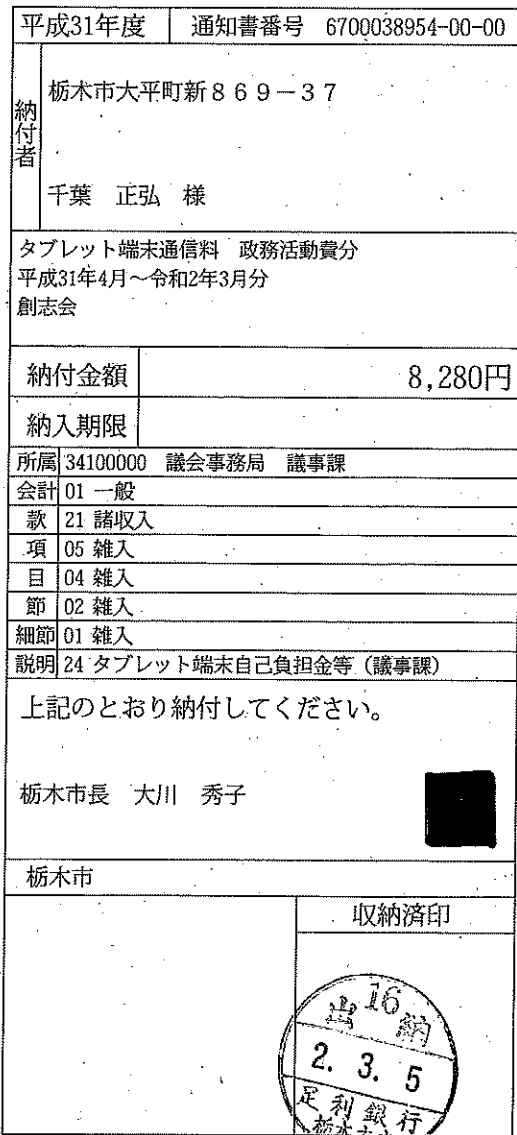 平成31年度 通知書番号 6700038954-00-00
納付者
栃木市大平町新869-37
千葉 正弘 様
タブレット端末通信料 政務活動費分
平成31年4月~令和2年3月分
創志会
納付金額 8,280円
納入期限
所属 34100000 議会事務局 議事課
会計 01 一般
款 21 諸収入
項 05 雑入
目 04 雑入
節 02 雑入
細節 01 雑入
説明 24 タブレット端末自己負担金等(議事課)
上記のとおり納付してください。
栃木市長 大川 秀子
栃木市
収納済印
16
出納
2. 3. 5
足利銀行